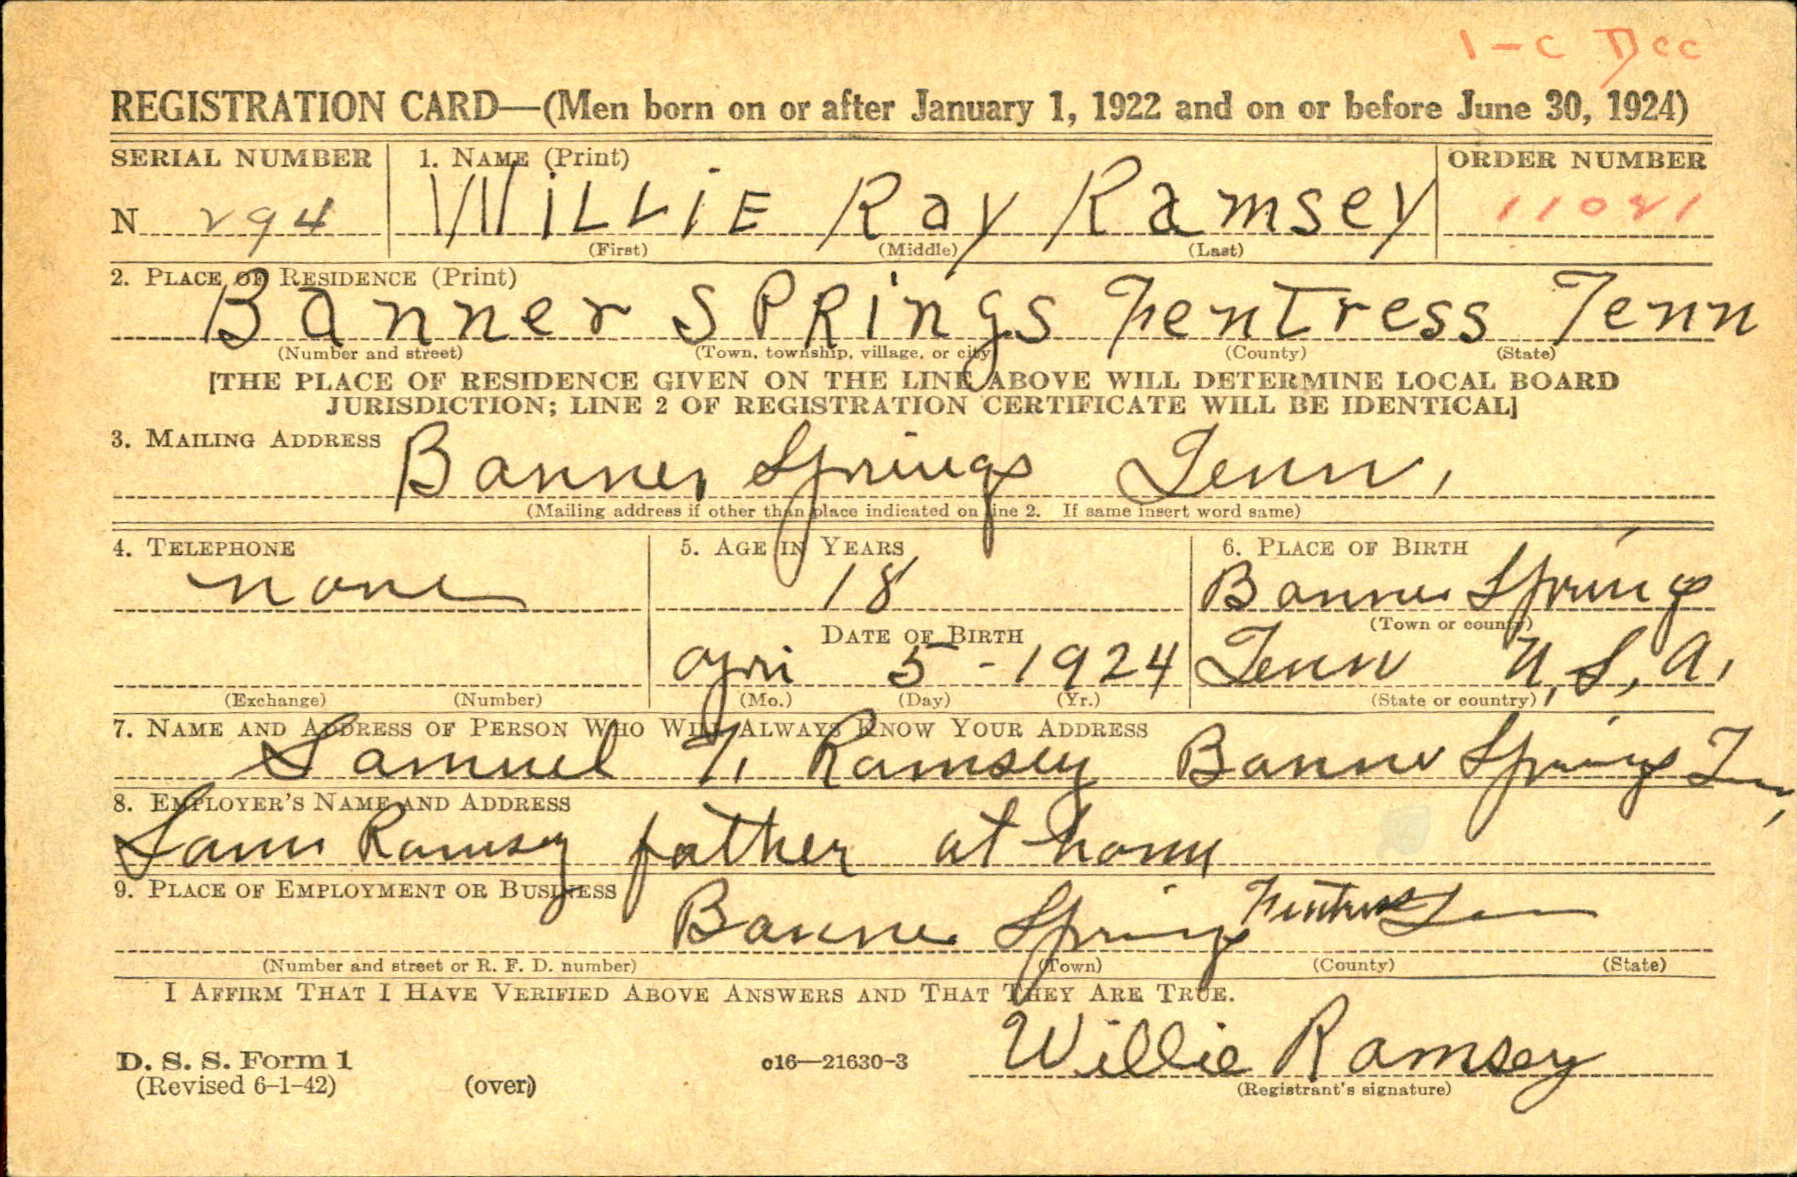 1-C Dec
REGISTRATION CARD—(Men born on or after January 1, 1922 and on or before June 30, 1924)
SERIAL NUMBER 1. NAME (Print) ORDER NUMBER
N 294 WILLIE Ray Ramsey 11021
(First) (Middle) (Last)
2. PLACE OF RESIDENCE (Print)
Banner SPRings Fentress Tenn
(Number and street) (Town, township, village, or city) (County) (State)
[THE PLACE OF RESIDENCE GIVEN ON THE LINE ABOVE WILL DETERMINE LOCAL BOARD
JURISDICTION; LINE 2 OF REGISTRATION CERTIFICATE WILL BE IDENTICAL]
3. MAILING ADDRESS
Banner Springs Tenn,
(Mailing address if other than place indicated on line 2. If same insert word same)
4. TELEPHONE 5. AGE IN YEARS 6. PLACE OF BIRTH
none 18 Banner Springs
(Town or county)
DATE OF BIRTH
Apri 5-1924 Tenn U.S.A.
(Exchange) (Number) (Mo.) (Day) (Yr.) (State or country)
7. NAME AND ADDRESS OF PERSON WHO WILL ALWAYS KNOW YOUR ADDRESS
Samuel T. Ramsey Banner Springs Tenn,
8. EMPLOYER'S NAME AND ADDRESS
Sam Ramsey father at home
9. PLACE OF EMPLOYMENT OR BUSINESS
Banner Spring Fentress Tenn
(Number and street or R. F. D. number) (Town) (County) (State)
I AFFIRM THAT I HAVE VERIFIED ABOVE ANSWERS AND THAT THEY ARE TRUE.
Willie Ramsey
D. S. S. Form 1 c16—21630-3
(Revised 6-1-42) (over) (Registrant's signature)